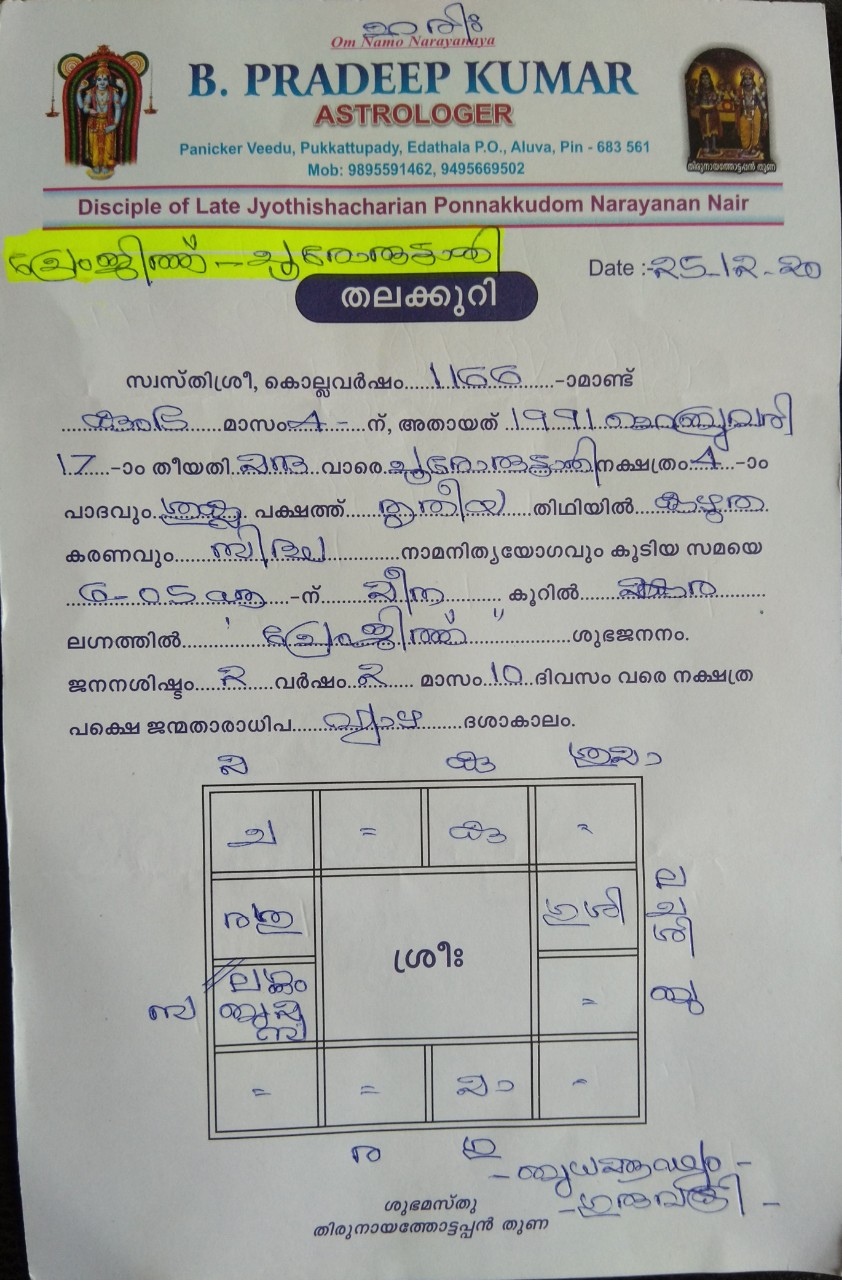 ഹരിഃ
Om Namo Narayanaya
B. PRADEEP KUMAR
ASTROLOGER
Panicker Veedu, Pukkattupady, Edathala P.O., Aluva, Pin - 683 561
Mob: 9895591462, 9495669502
തിരുനായത്തോട്ടപ്പൻ തുണ
Disciple of Late Jyothishacharian Ponnakkudom Narayanan Nair
പ്രേംജിത്ത് - പൂരോരുട്ടാതി
Date :-25-12-20
തലക്കുറി
സ്വസ്തിശ്രീ, കൊല്ലവർഷം......1166......-ാമാണ്ട്
കുംഭ മാസം 4 - ന്, അതായത് 1991 ഫെബ്രുവരി
17 -ാം തീയതി വാരെ പൂരോരുട്ടാതി നക്ഷത്രം 4 -ാം
പാദവും ശുക്ല പക്ഷത്ത് തൃതീയ തിഥിയിൽ കഴുത
കരണവും നാമനിത്യയോഗവും കൂടിയ സമയെ
6-05 -ന് മീന കൂറിൽ മകര
ലഗ്നത്തിൽ പ്രേംജിത്ത് ശുഭജനനം.
ജനനശിഷ്ടം 2 വർഷം 2 മാസം 10 ദിവസം വരെ നക്ഷത്ര
പക്ഷെ ജന്മതാരാധിപ വ്യാഴ ദശാകാലം.
മ കു ശുമാ
ച = കു =
രശു ഗുശി ല ച ശി
ശ്രീഃ
സ =
= = മാ -
ര ഗു
ശുഭമസ്തു
തിരുനായത്തോട്ടപ്പൻ തുണ